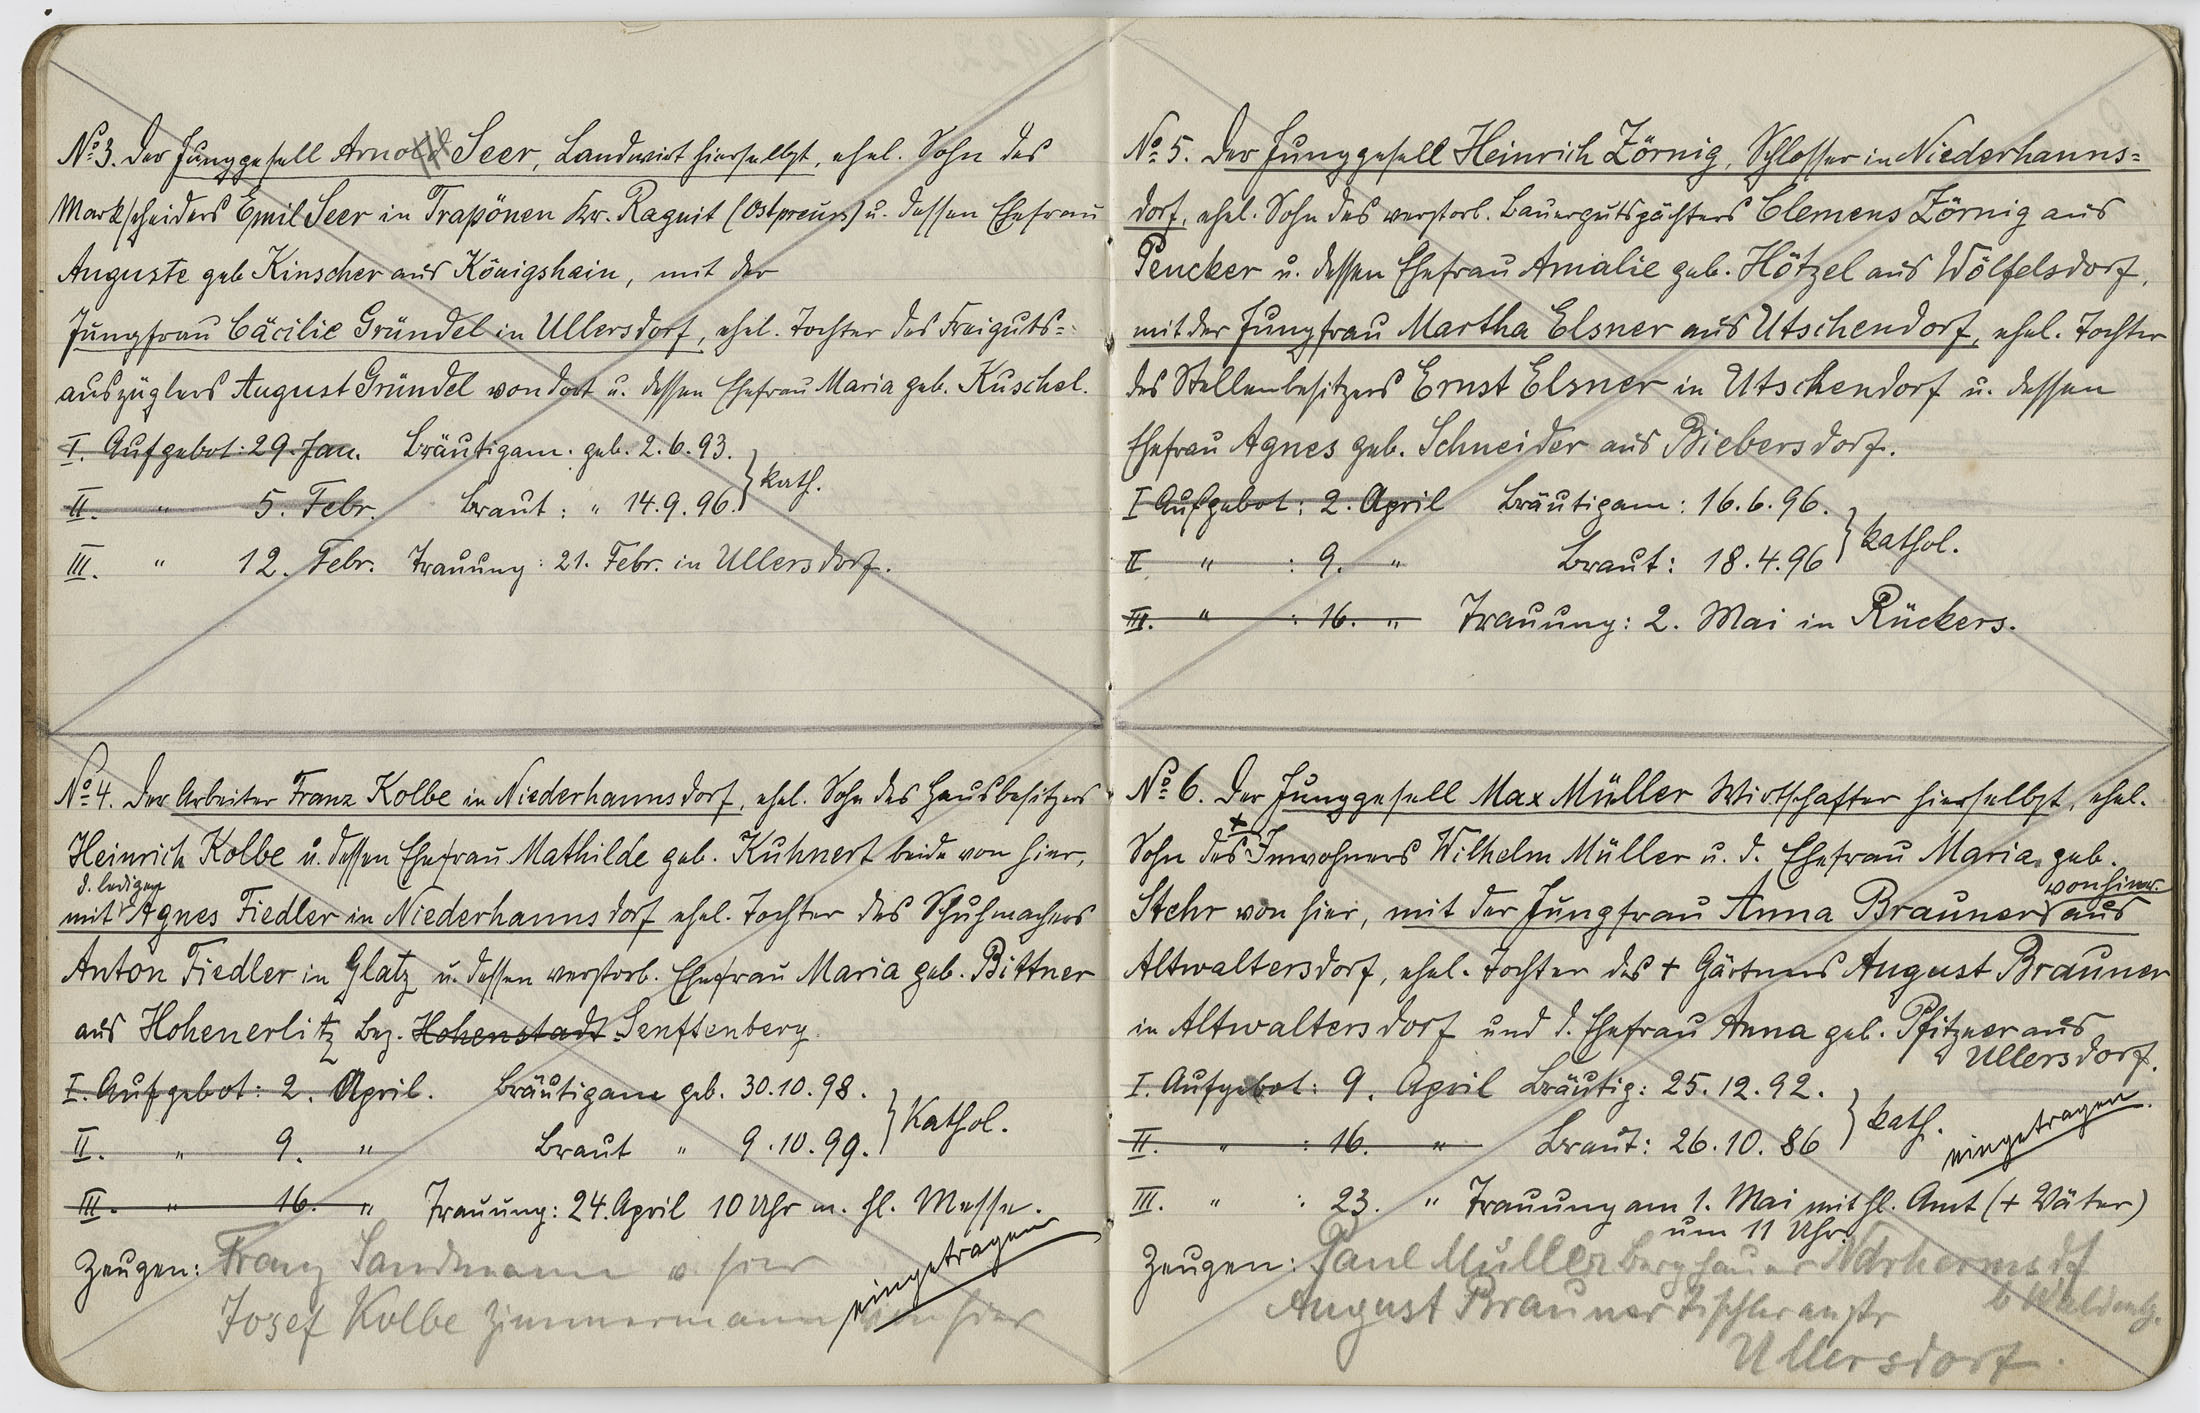 No 3. Der Junggesell Arnold Seer, Landwirt hierselbst, ehel. Sohn des
Markscheiders Emil Seer in Trapönen Kr. Ragnit (Ostpreuss) u. dessen Ehefrau
Auguste geb Kinscher aus Königshain, mit der
Jungfrau Cäcilie Gründel in Ullersdorf, ehel. Tochter des Freiguts=
auszüglers August Gründel von dort u. dessen Ehefrau Maria geb. Kuschel.
I. Aufgebot: 29. Jan. Bräutigam. geb. 2.6.93.
II. " 5. Febr. Braut: " 14.9.96. } kath.
III. " 12. Febr. Trauung: 21. Febr. in Ullersdorf.
No 4. Der Arbeiter Franz Kolbe in Niederhannsdorf, ehel. Sohn des Hausbesitzers
Heinrich Kolbe u. dessen Ehefrau Mathilde geb. Kuhnert beide von hier,
d. ledigen
mit Agnes Fiedler in Niederhannsdorf ehel. Tochter des Schuhmachers
Anton Fiedler in Glatz u. dessen verstorb. Ehefrau Maria geb. Bittner
aus Hohenerlitz Bez. Hohenstadt Senftenberg.
I. Aufgebot: 2. April. Bräutigam geb. 30.10.98.
II. " 9. " Braut " 9.10.99. } Kathol.
III. " 16. " Trauung: 24. April 10 Uhr m. hl. Messe.
Zeugen: Franz Sandmann v. hier
eingetragen
Josef Kolbe Zimmermann von hier
No 5. Der Junggesell Heinrich Zörnig, Schlosser in Niederhanns=
dorf, ehel. Sohn des verstorb. Bauergutspächters Clemens Zörnig aus
Pencker u. dessen Ehefrau Amalie geb. Hötzel aus Wölfelsdorf,
mit der Jungfrau Martha Elsner aus Utschendorf, ehel. Tochter
des Stellenbesitzers Ernst Elsner in Utschendorf u. dessen
Ehefrau Agnes geb. Schneider aus Biebersdorf.
I Aufgebot: 2. April Bräutigam: 16.6.96.
II " : 9. " Braut: 18.4.96 } kathol.
III. " : 16. " Trauung: 2. Mai in Rückers.
No 6. Der Junggesell Max Müller Wirtschafter hierselbst, ehel.
Sohn des + Inwohners Wilhelm Müller u. d. Ehefrau Maria geb.
von hier
Stehr von hier, mit der Jungfrau Anna Brauner aus
Altwaltersdorf, ehel. Tochter des + Gärtners August Brauner
in Altwaltersdorf und d. Ehefrau Anna geb. Pfitzner aus
Ullersdorf.
I. Aufgebot: 9. April Bräutig: 25.12.92.
II. " : 16. " Braut: 26.10.86 } kath.
eingetragen
III. " : 23. " Trauung am 1. Mai mit hl. Amt (+ Väter)
um 11 Uhr.
Zeugen: Paul Müller Berghauer Ndrhermsdf
b Waldenbg.
August Brauner Tischler
Ullersdorf.